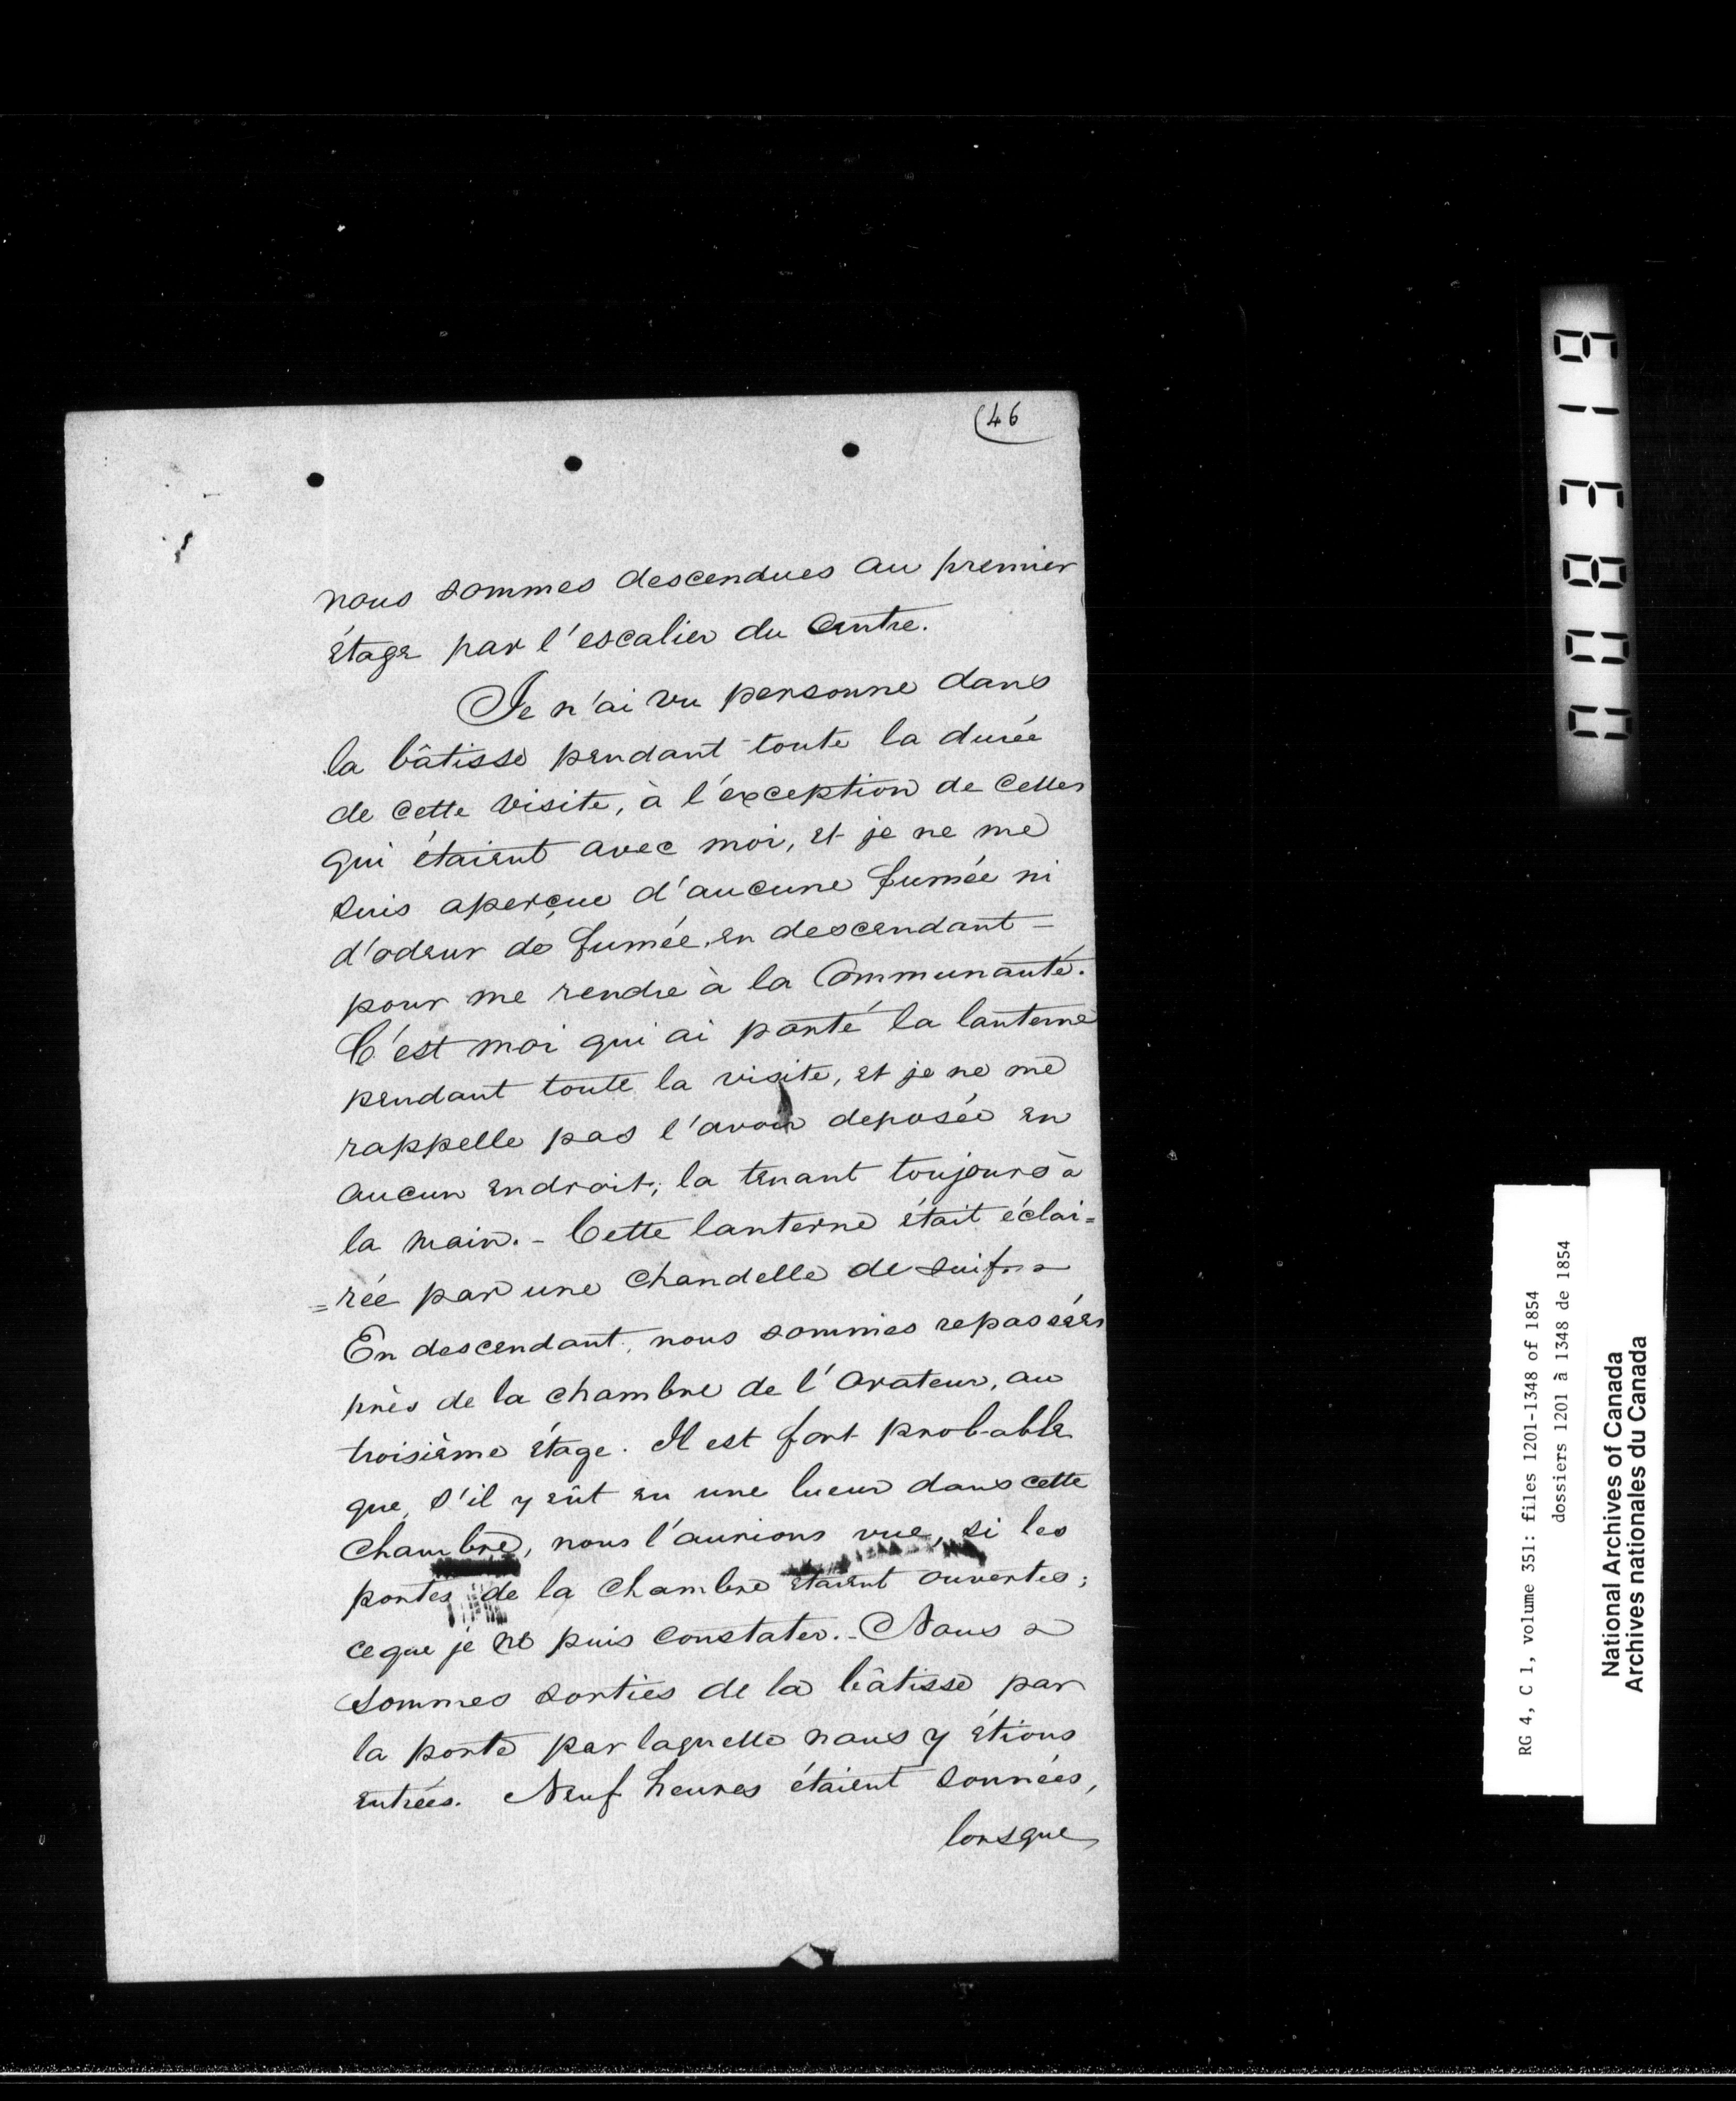 (46
nous sommes descendues au premier
étage par l'escalier du Centre.
Je n'ai vu personne dans
la bâtisse pendant toute la durée
de cette visite, à l'exception de celles
qui étaient avec moi, et je ne me
suis aperçue d'aucune fumée ni
d'odeur de fumée, en descendant -
pour me rendre à la Communauté.
C'est moi qui ai porté la lanterne
pendant toute la visite, et je ne me
rappelle pas l'avoir deposée en
aucun endroit; la tenant toujours à
la main. - Cette lanterne était éclai=
=rée par une chandelle de suif.
En descendant, nous sommes repassées
près de la chambre de l'Orateur, au
troisième étage. Il est fort probable
que, s'il y eût eu une lueur dans cette
chambre, nous l'aurions vue, si les
portes de la chambre étaient ouvertes;
ce que je ne puis constater. - Nous
sommes sorties de la bâtisse par
la porte par laquelle nous y étions
entrées. Neuf heures étaient sonnées,
lorsque
000E19
RG 4, C 1, volume 351: files 1201-1348 of 1854
dossiers 1201 à 1348 de 1854
National Archives of Canada
Archives nationales du Canada